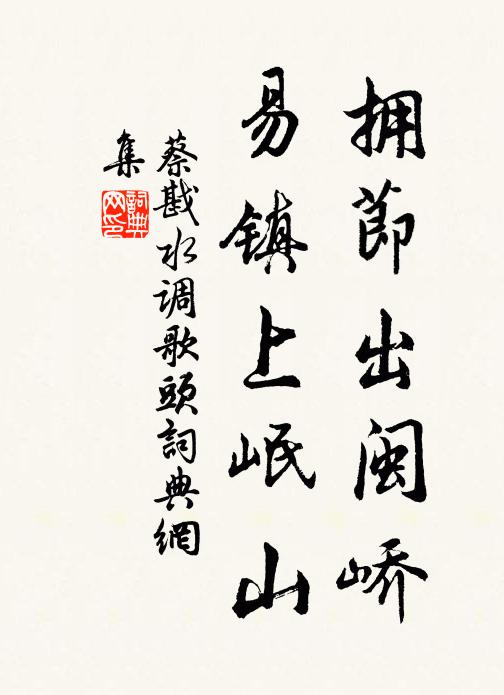 拥節出闽峤
易镇上岷山
蔡戡水调歌頭詞典網
集
詞典
网印